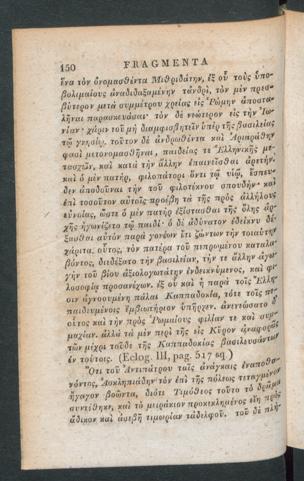 150 FRAGMENTA
ἕνα τὸν ὀνομασθέντα Μιθριδάτην, ἐξ οὗ τοὺς ὑπο-
βολιμαίους ἀναδιδαξαμένην τἀνδρὶ, τὸν μὲν πρεσ-
βύτερον μετὰ συμμέτρου χρείας εἰς Ῥώμην ἀποστα-
λῆναι παρασκευάσαι· τὸν δὲ νεώτερον εἰς τὴν Ἰω-
νίαν· χάριν τοῦ μὴ διαμφισβητεῖν ὑπὲρ τῆς βασιλείας
τῷ γνησίῳ. τοῦτον δὲ ἀνδρωθέντα καὶ Ἀριαράθην
φασὶ μετονομασθῆναι, παιδείας τε Ἑλληνικῆς με-
τασχεῖν, καὶ κατὰ τὴν ἄλλην ἐπαινεῖσθαι ἀρετήν.
καὶ ὁ μὲν πατὴρ, φιλοπάτορι ὄντι τῷ υἱῷ, ἔσπευ-
δεν ἀποδοῦναι τὴν τοῦ φιλοτέκνου σπουδήν· καὶ
ἐπὶ τοσοῦτον αὐτοῖς προέβη τὰ τῆς πρὸς ἀλλήλους
εὐνοίας, ὥστε ὁ μὲν πατὴρ ἐξίστασθαι τῆς ὅλης ἀρ-
χῆς ἠγωνίζετο τῷ παιδί· ὁ δὲ ἀδύνατον ἐδείκνυ δέ-
ξασθαι αὐτὸν παρὰ γονέων ἔτι ζώντων τὴν τοιαύτην
χάριτα. οὗτος, τὸν πατέρα τοῦ πεπρωμένου καταλα-
βόντος, διεδέξατο τὴν βασιλείαν, τήν τε ἄλλην ἀγω-
γὴν τοῦ βίου ἀξιολογωτάτην ἐνδεικνύμενος, καὶ φι-
λοσοφίᾳ προσανέχων. ἐξ οὗ καὶ ἡ παρὰ τοῖς Ἕλλη-
σιν ἀγνοουμένη πάλαι Καππαδοκία, τότε τοῖς πε-
παιδευμένοις ἐμβιωτήριον ὑπῆρχεν. ἀνενεώσατο δ'
οὗτος καὶ τὴν πρὸς Ῥωμαίους φιλίαν τε καὶ συμ-
μαχίαν. ἀλλὰ τὰ μὲν περὶ τῆς εἰς Κῦρον ἀναφορᾶς
τῶν μέχρι τοῦδε τῆς Καππαδοκίας βασιλευσάντων
ἐν τούτοις. (Eclog. III, pag. 517 sq)
Ὅτι τοῦ Ἀντιπάτρου ταῖς ἀνάγκαις ἐναποθα-
νόντος, Ἀσκληπιάδην τὸν ἐπὶ τῆς πόλεως τεταγμένον
ἤγαγον βοῶντα, διότι Τιμόθεος τοῦτο τὸ δρᾶμα
συντίθηκεν, καὶ τὸ μειράκιον προκεκλημένος εἴη πρὸς
ἄδικον καὶ ἀσεβῆ τιμωρίαν τἀδελφοῦ. τοῦ δὲ πλή-